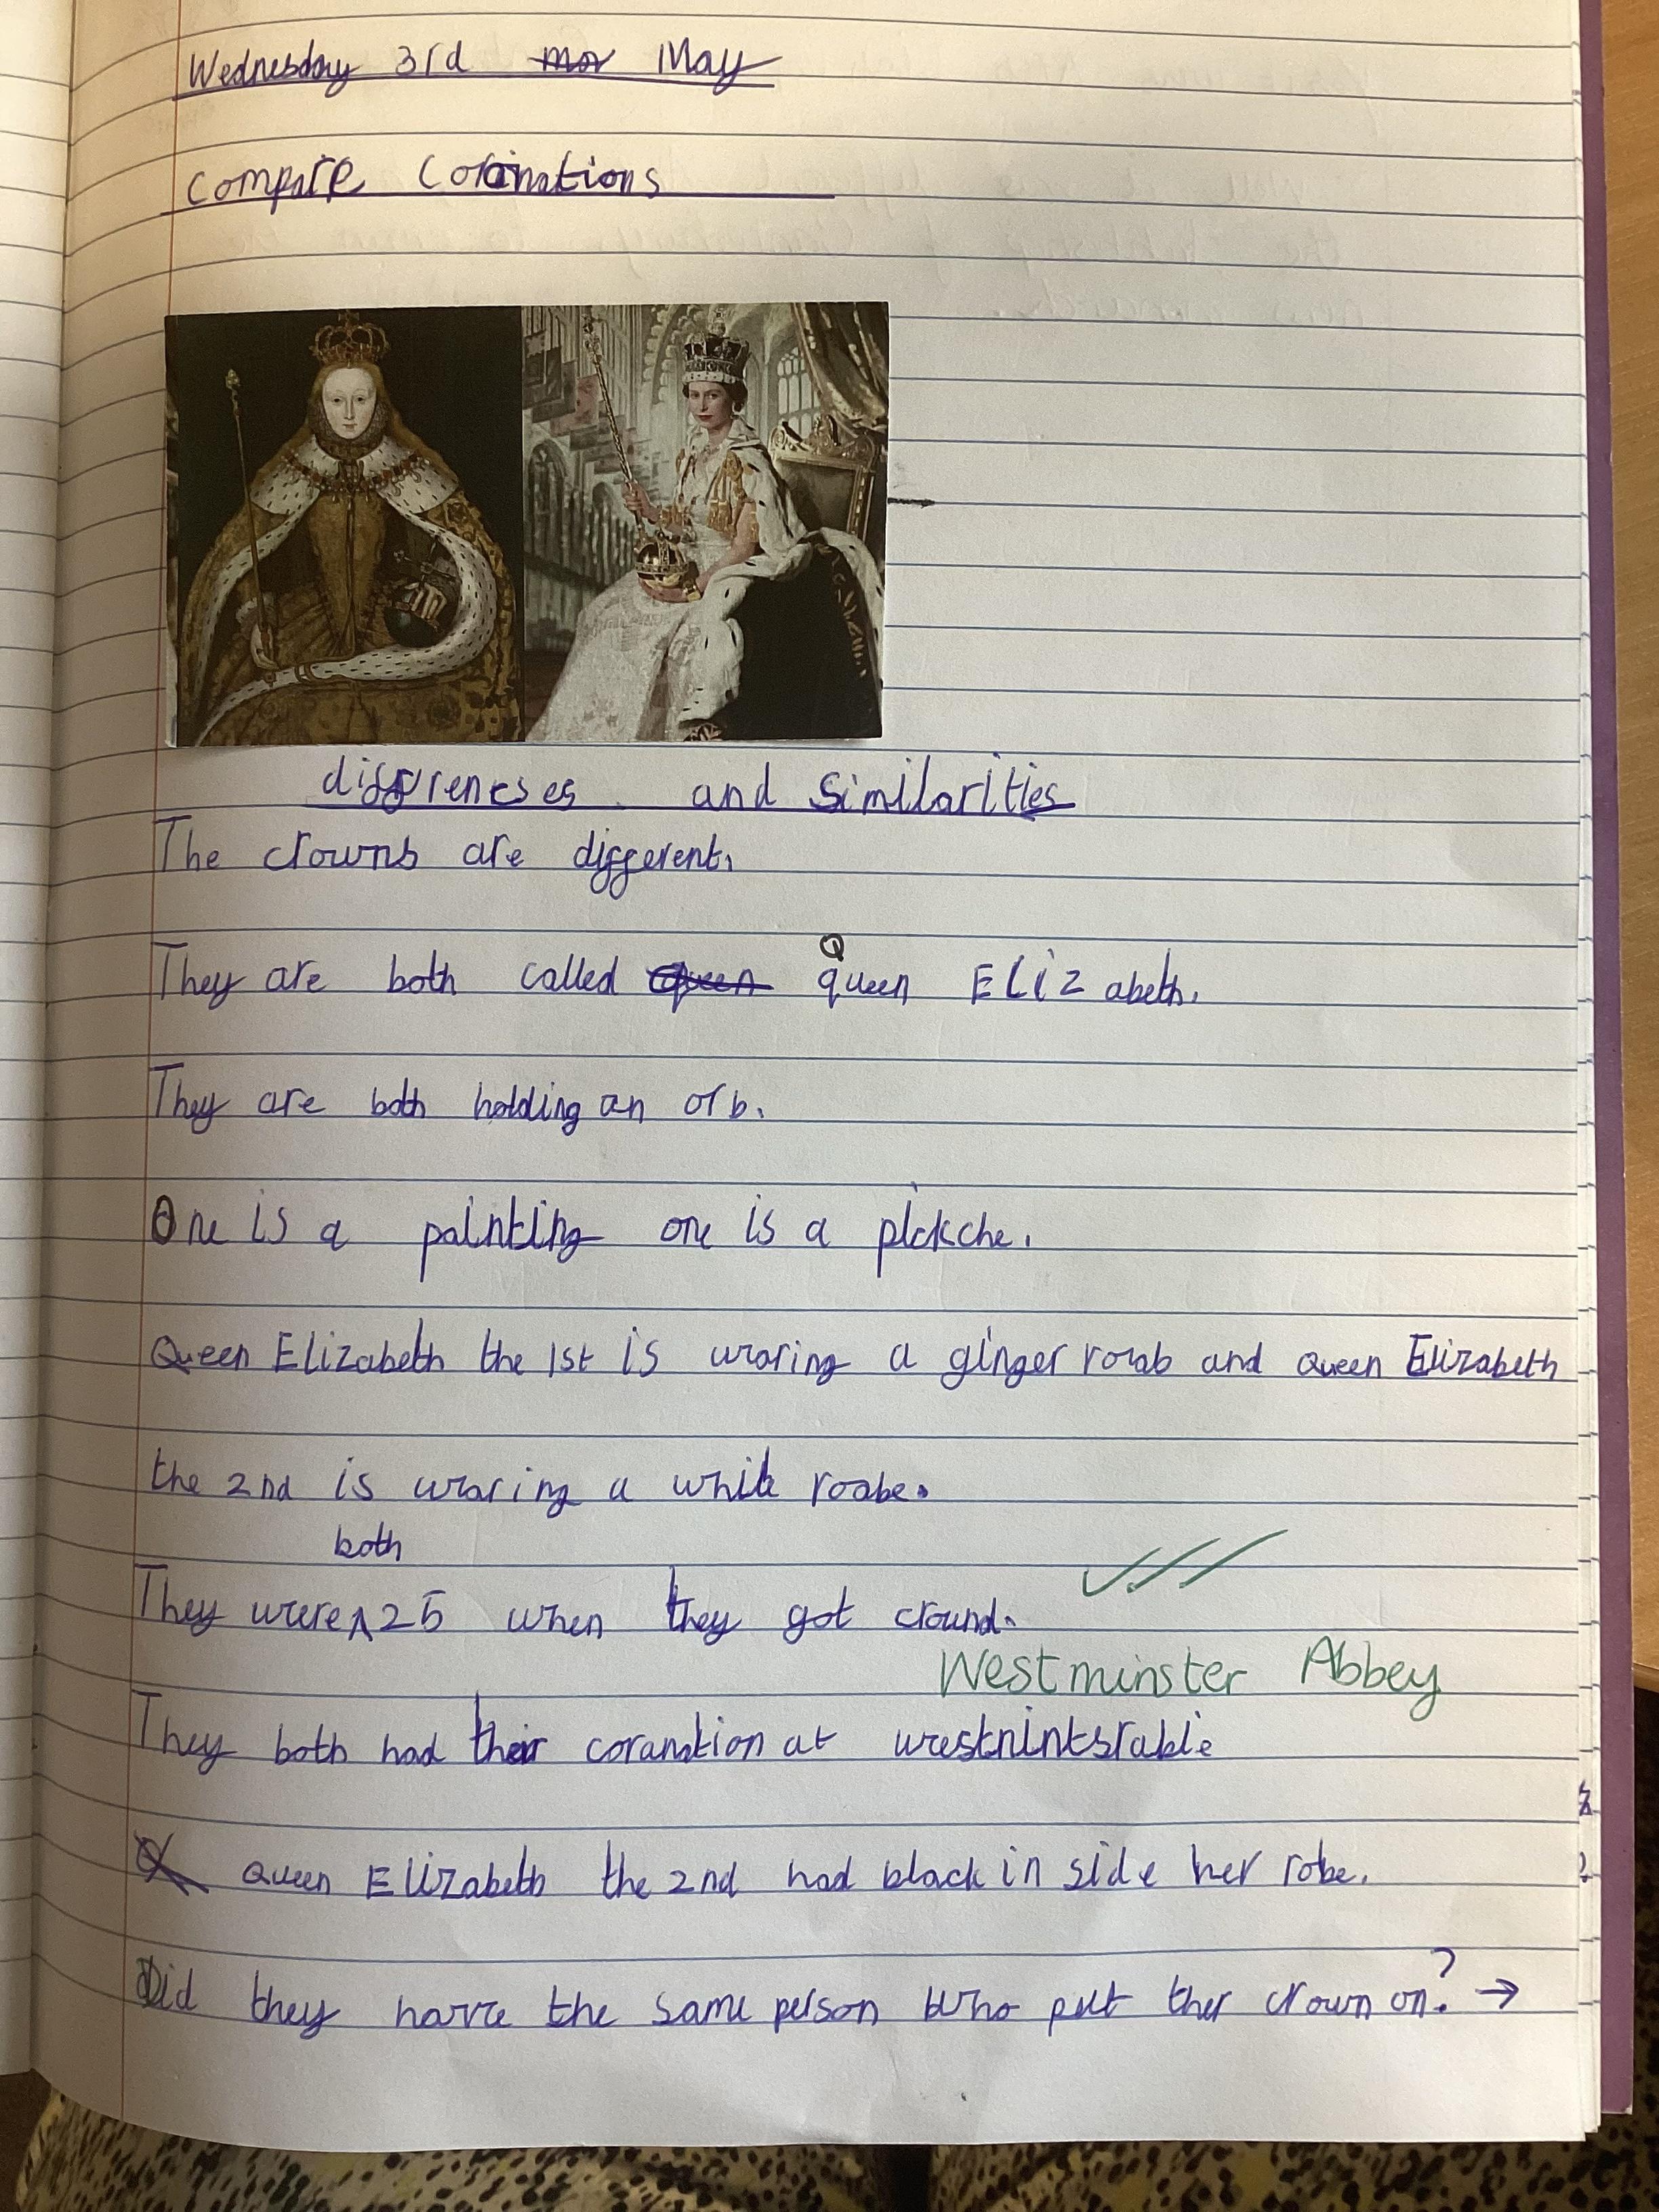 Wednesday 3rd mar May
Compare Coranations
diffrencses and similarities
The crowns are different.
Q
They are both called queen queen ELIZabeth.
They are both holding an orb.
One is a painting one is a pickche.
Queen Elizabeth the 1st is waring a ginger roab and queen Elizabeth
the 2nd is waring a white roabe.
both
They were ^ 25 when they got cround.
Westminster Abbey
They both had their coranation at westnintsrable
Queen Elizabeth the 2nd had black in side her robe.
Did they have the same person who put ther crown on? →